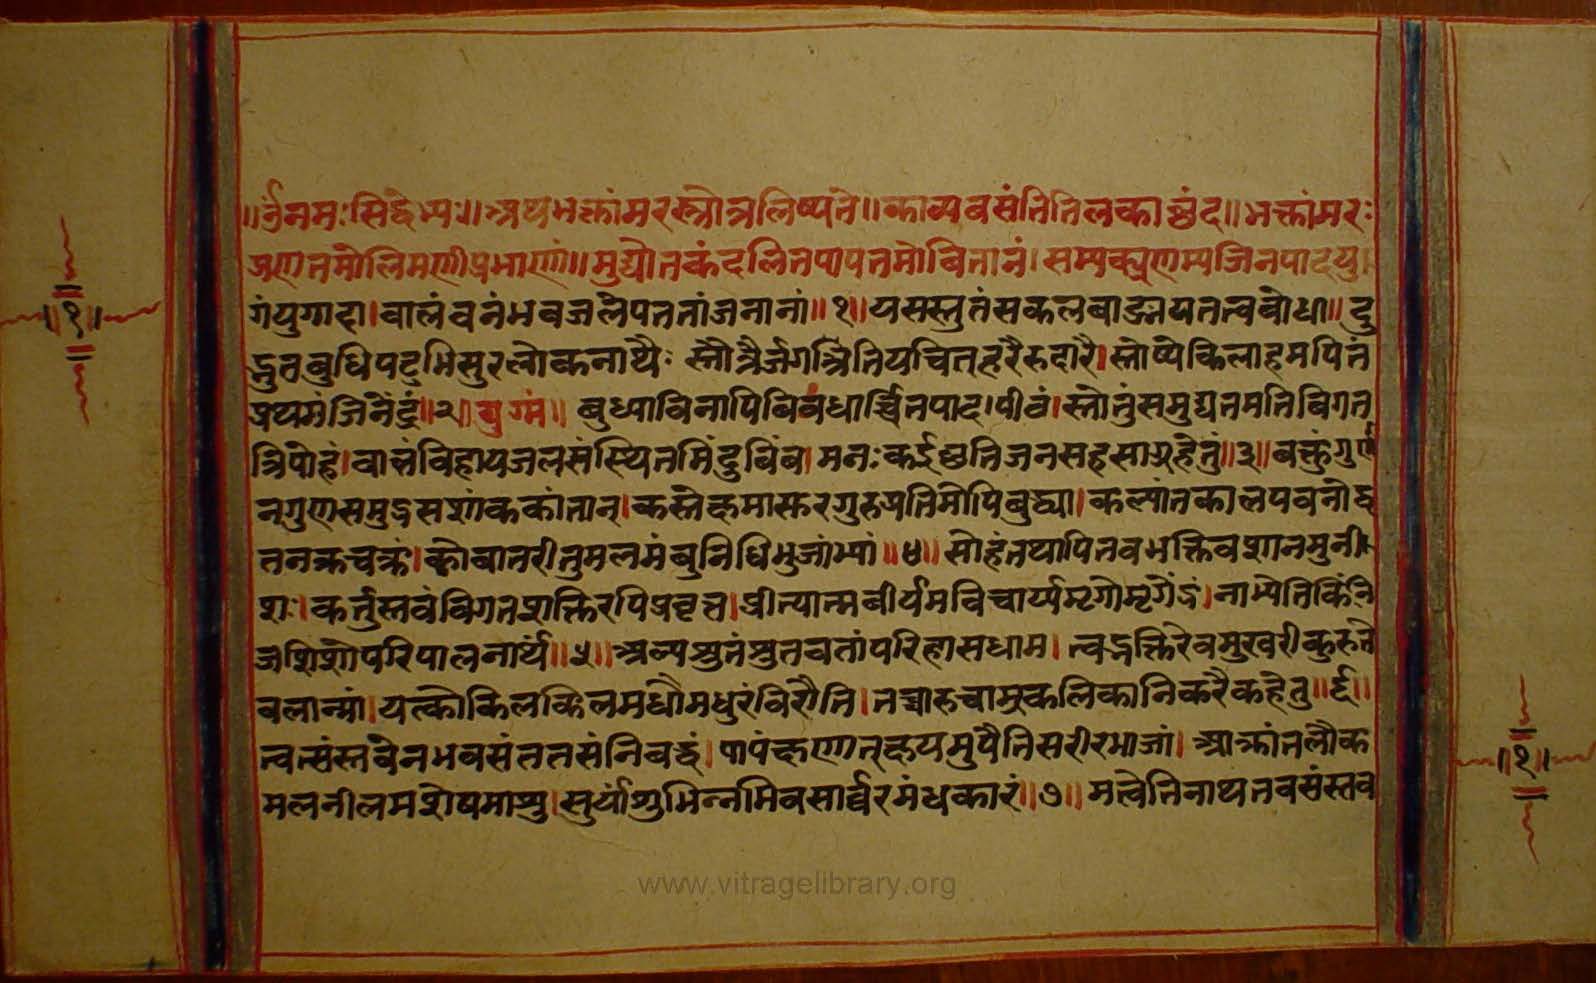 ॥र्उनमःसिद्धेभ्यः॥अथभक्तांमरस्तोत्रलिष्यते॥काव्यवसंततिलकाछंद॥भक्तांमरः
प्रणतमोलिमणीप्रभाणां॥मुद्योतकंदलितपापतमोवितानं।सम्यक्प्रणम्यजिनपादयु।
गंयुगादा।वालंवनंभवजलेपततांजनानां॥१॥यसस्तुतंसकलवाङ्मयतत्ववोधा॥दु
द्भुतबुधिपटुभिसुरलोकनाथैः स्तौत्रैर्जगत्त्रितियचितहरैरुदारै।स्तोष्येकिलाहमपितं
प्रथमंजिनेंद्रं॥२॥युग्मं॥ बुध्याविनापिविवधार्च्चितपाद।पीवं।स्तोतुंसमुद्यतमतिविगत
त्रिपोहं।वालंविहायजलसंस्थितमिंदुविंव।मनःकईछतिजनसहसाग्रहेतुं॥३॥वक्तुंगुणा
न्गुणसमुद्रसशांककांतान्।कस्तेक्षमास्फरगुरुप्रतिमोपिबुद्ध्या।कल्पांतकालपवनोद्ध
तनक्रचक्रं।कोवातरीतुमलमंबुनिधिभुजांभ्यां॥४॥सोहंतथापितवभक्तिवशानमुनी।
शः।कर्तुस्तवंविगतशक्तिरपिप्रवृत्त।प्रीत्यात्मवीर्यमविचार्य्यमृगोमृगेंद्रं।नाभ्येतिकिंनि
जशिशोपरिपालनार्थं॥५॥अल्पश्रुतंश्रुतवतांपरिहासधाम।त्वद्भक्तिरेवमुखरीकुरुते
वलान्मां।यत्कोकिलकिलमधौमधुरंविरौति।तच्चारुचाम्रकलिकानिकरैकहेतु॥६॥
त्वत्संस्तवेनभवसंततसंनिवद्धं।पापंक्षणातक्षयमुपैतिसरीरभाजां।आक्रांतलौक
मलनीलमशेषमाश्रु।सुर्याश्रुभिन्नमिवसार्व्वरमंधकारं॥७॥मत्वेतिनाथतवसंस्तव
१
१
www.vitragelibrary.org